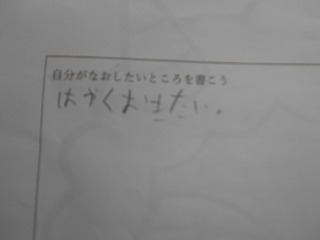 自分がなおしたいところを書こう
はやくおきたい。